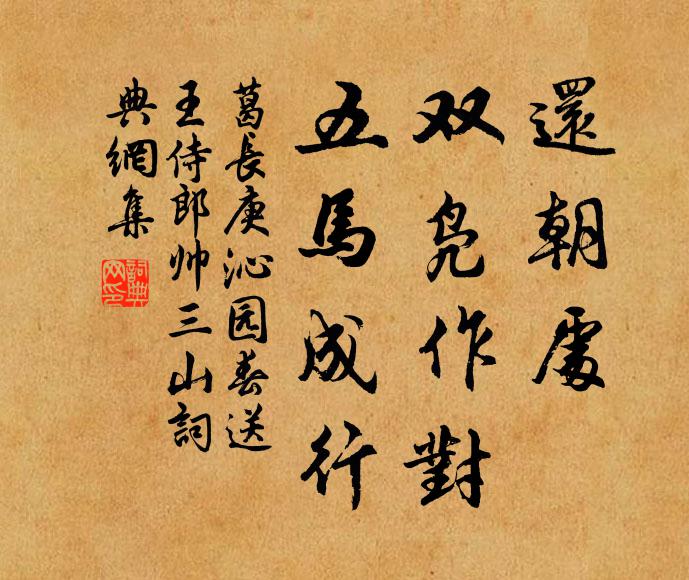 還朝處
双凫作對
五馬成行
葛長庚沁园春送
王侍郎帅三山詞
典網集
詞典網印